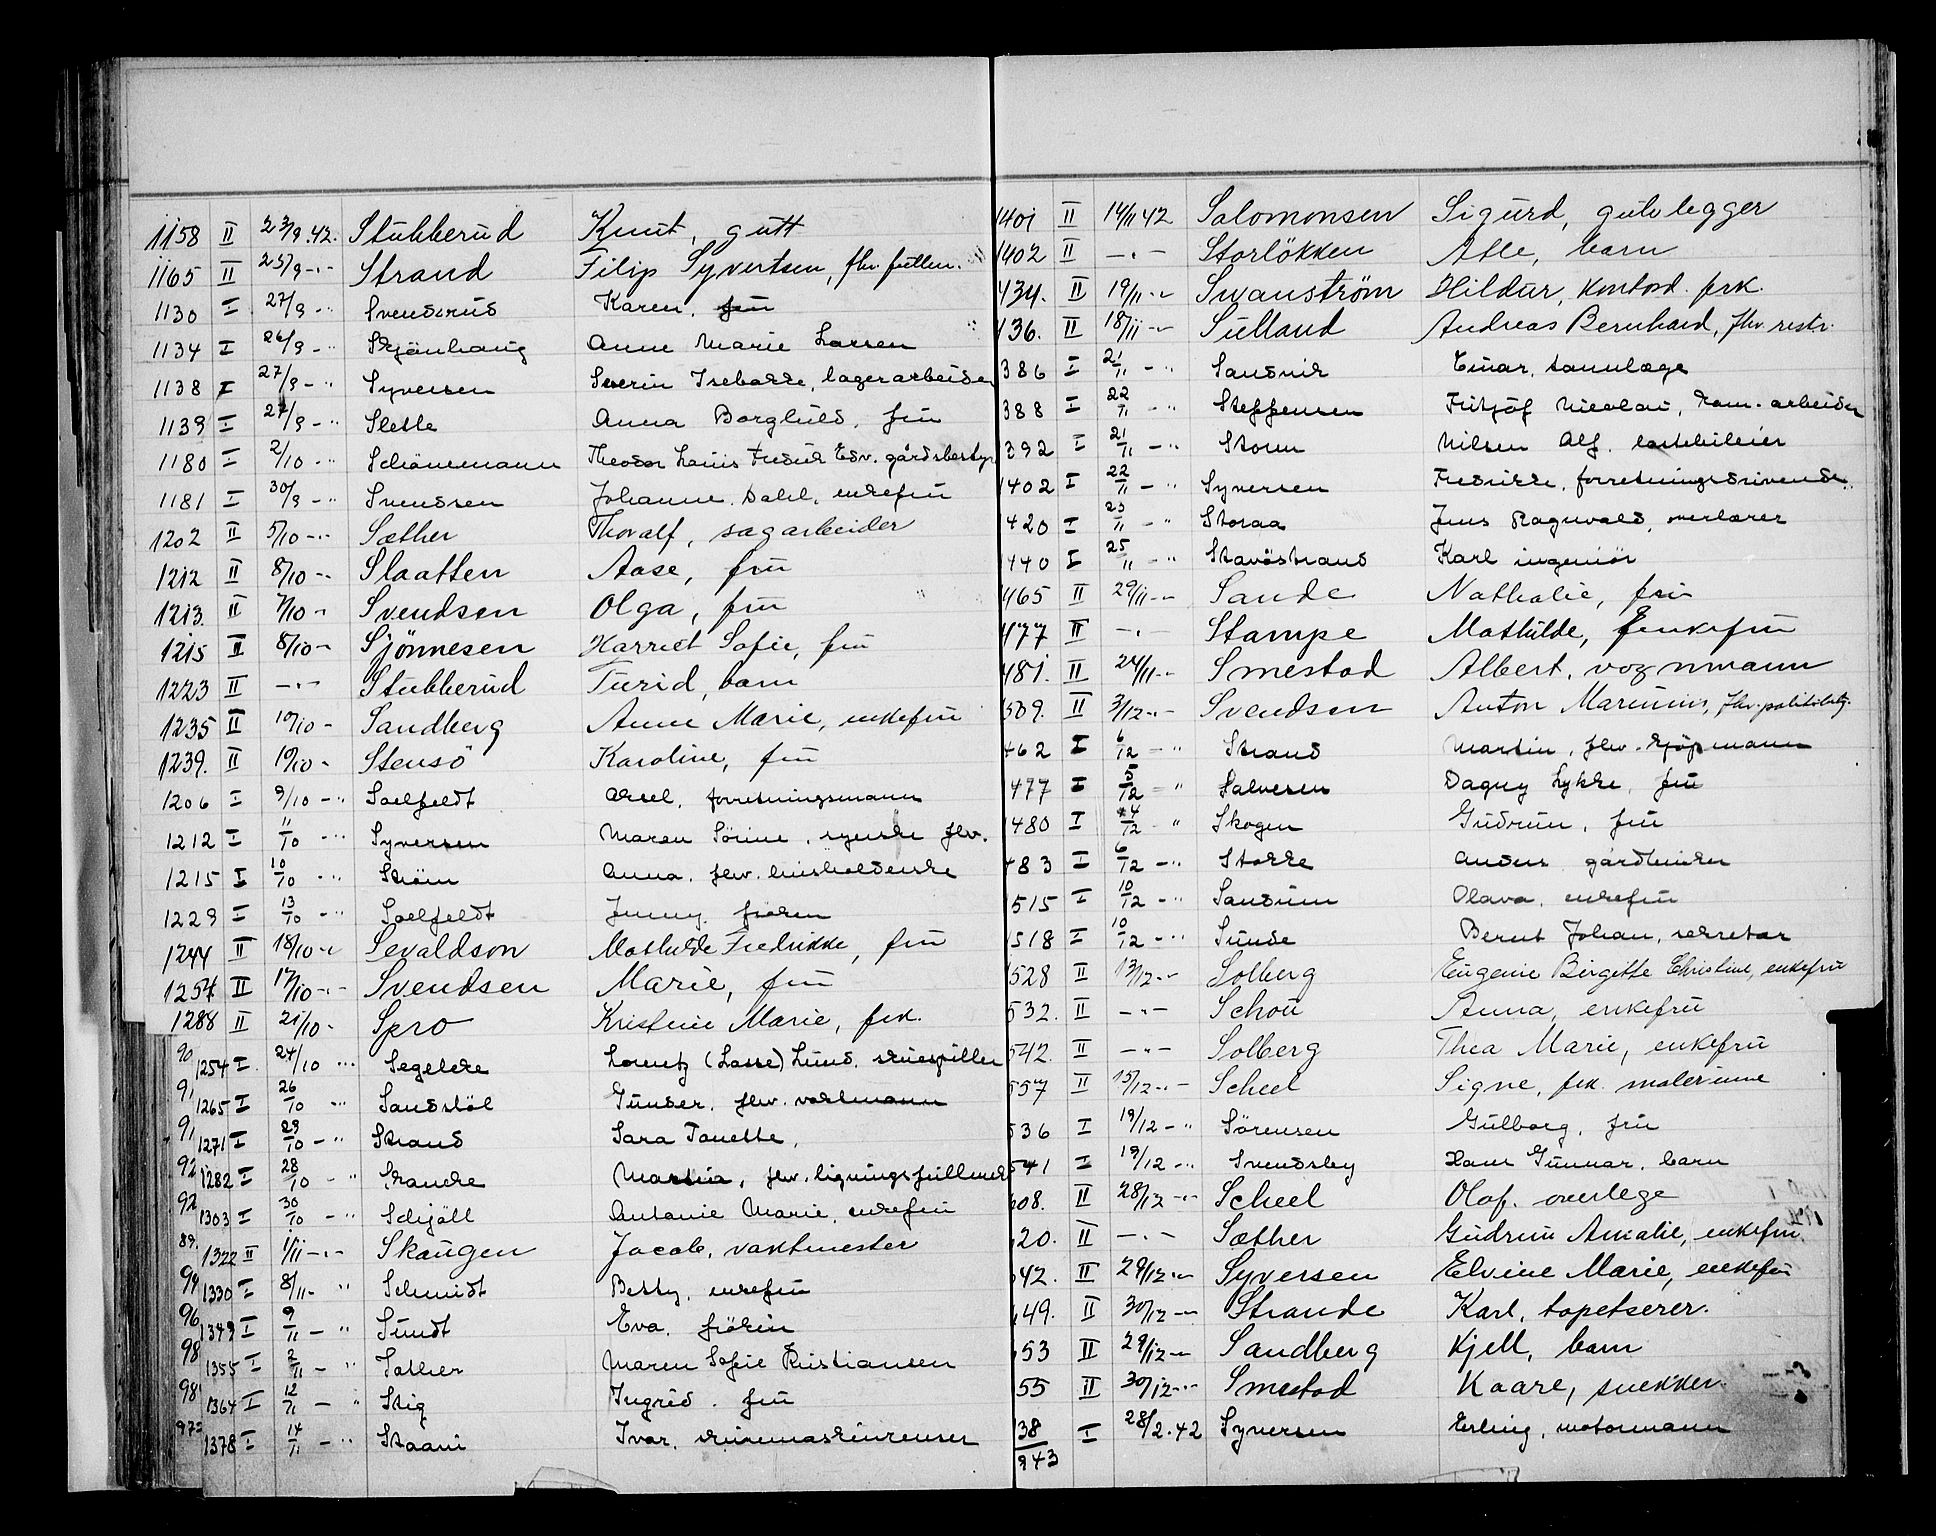 1158 II 23/9.42. Stubberud Knut, gutt
1165 II 25/9 -"- Strand Filip Syvertsen, fhv.
1130 I 27/9 -" Svendsrud Karen, fru
1134 I 26/9 -" Skjönhaug Anne Marie Larsen
1138 I 27/9 -" Syversen Severin Isebakke, lagerarbeider
1139 I 27/9 -" Slette Anna Borghild, fru
1180 I 2/10 -" Schönemann Theodor Louis Fredrik Edv. gårdsbestyr
1181 I 30/9 -" Svendsen Johanne Dahl, enkefru
1202 II 5/10 -"- Sæther Thoralf, sagarbeider
1212 II 8/10 -"- Slaatten Aase, fru
1213 II 7/10 -"- Svendsen Olga, fru
1215 II 8/10 -"- Sjönnesen Harriet Sofie, fru
1223 II -"- Stubberud Turid, barn
1235 II 10/10 - Sandberg Anne Marie, enkefru
1239. II 10/10 - Stensö Karoline, fru
1206 I 9/10 -" Saelfeldt Aksel, forretningsmann
1212 I 11/10 -" Syversen Maren Sörine, syerske fhv.
1215 I 10/10 -" Ström Anna, fhv. husholderske
1229 I 13/10 -" Saelfeldt Jenny, fröken
1244 II 18/10 -"- Sevaldson Mathilde Fredrikke, fru
1254 II 17/10 -"- Svendsen Marie, fru
1288 II 21/10 - Spro Kristine Marie, frk.
1254 I 24/10 -" Segelcke Lorentz (Lasse) Lund, skuespiller
1265 I 26/10 -" Sandstöl Gunder, fhv. vaktmann
1271 I 29/10 -" Strand Sara Tonette,
1282 I 28/10 -" Skancke Martin, fhv. ligningsfullmek
1303 I 30/10 -" Schjöll Antonie Marie, enkefru
1322 II 1/11 -"- Skaugen Jacob, vaktmester
1330 I 8/11 -" Schmidt Betty, enkefru
1349 I 9/11 -" Sundt Eva, frökin
1355 I 2/11 -" Sather Maren Sofie Kristiansen
1364 I 12/11 -" Stig Ingrid, fru
1378 I 14/11 -" Staani Ivar, skrivemaskinrenser
1401 II 14/11 42 Salomonsen Sigurd, gulvlegger
1402 II -"- Storlökken Atle, barn
434. II 19/11 -"- Swanström Hildur, kontord. frk.
436. II 18/11 -"- Sulland Andreas Bernhard, fhv. restr.
386 I 21/11 -" Sandvik Einar, tannlæge
388 I 22/11 -" Steffensen Fritjof Nicolai, kom. arbeider
392 I 21/11 -" Storm Nilsen Alf, lastebileier
1402 I 22/11 -" Syversen Fredrikke, forretningsdrivende
420 I 23/11 -" Storaa Jens Ragnvald, overlærer
440 I 25/11 -" Stavöstrand Karl ingeniör
465 II 29/11 -"- Sande Nathalie, fru
477 II -"- Stampe Mathilde, enkefru
481. II 24/11 -"- Smestad Albert, vognmann
509. II 3/12 -"- Svendsen Anton Marinius, fhv. politibetj.
462 I 6/12 -" Strand Martin, fhv. kjöpmann
477 I 5/12 -" Salvesen Dagny Lykke, fru
480 I 4/12 -" Skogen Gudrun, fru
483 I 6/12 -" Stokke Anders gårdbruker
515 I 10/12 -" Sandum Olava, enkefru
518 I 10/12 -" Sunde Bernt Johan, sekretær
528 II 13/12 -"- Solberg Eugenie Birgitte Christine, enkefru
532. II -"- Schou Anna, enkefru
542. II -"- Solberg Thea Marie, enkefru
557 II 15/12 -"- Scheel Signe, frk. malerinne
536 I 19/12 -" Sörensen Gulborg, fru
541 I 19/12 -" Svendsby Hans Gunnar, barn
608. II 28/12 -"- Scheel Olaf, overlege
20. II -"- Sæther Gudrun Amalie, enkefru.
42. II 29/12 -"- Syversen Elvine Marie, enkefru
49. II 30/12 -"- Strande Karl, tapetserer.
53 II 29/12 -"- Sandberg Kjell, barn
55 II 30/12 -"- Smestad Kaare, snekker
38/943 I 28/2.42 Syversen Erling, motormann